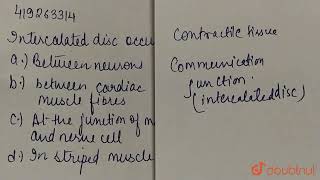 419263314
Intercalated disc occu
a.) Between neurons
b.) between cardiac
muscle fibres
c.) At the junction of m
and nerve cell
d.) In striped muscle
Contractic tissue
Communication
junction.
(intercalated disc)
doubtnut